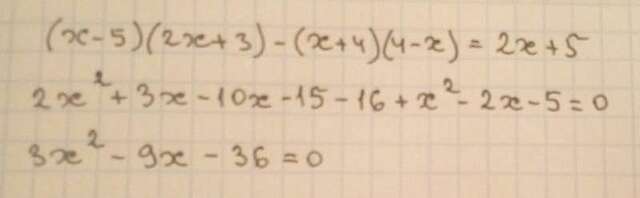 (x-5)(2x+3)-(x+4)(4-x)=2x+5
2x²+3x-10x-15-16+x²-2x-5=0
3x²-9x-36=0